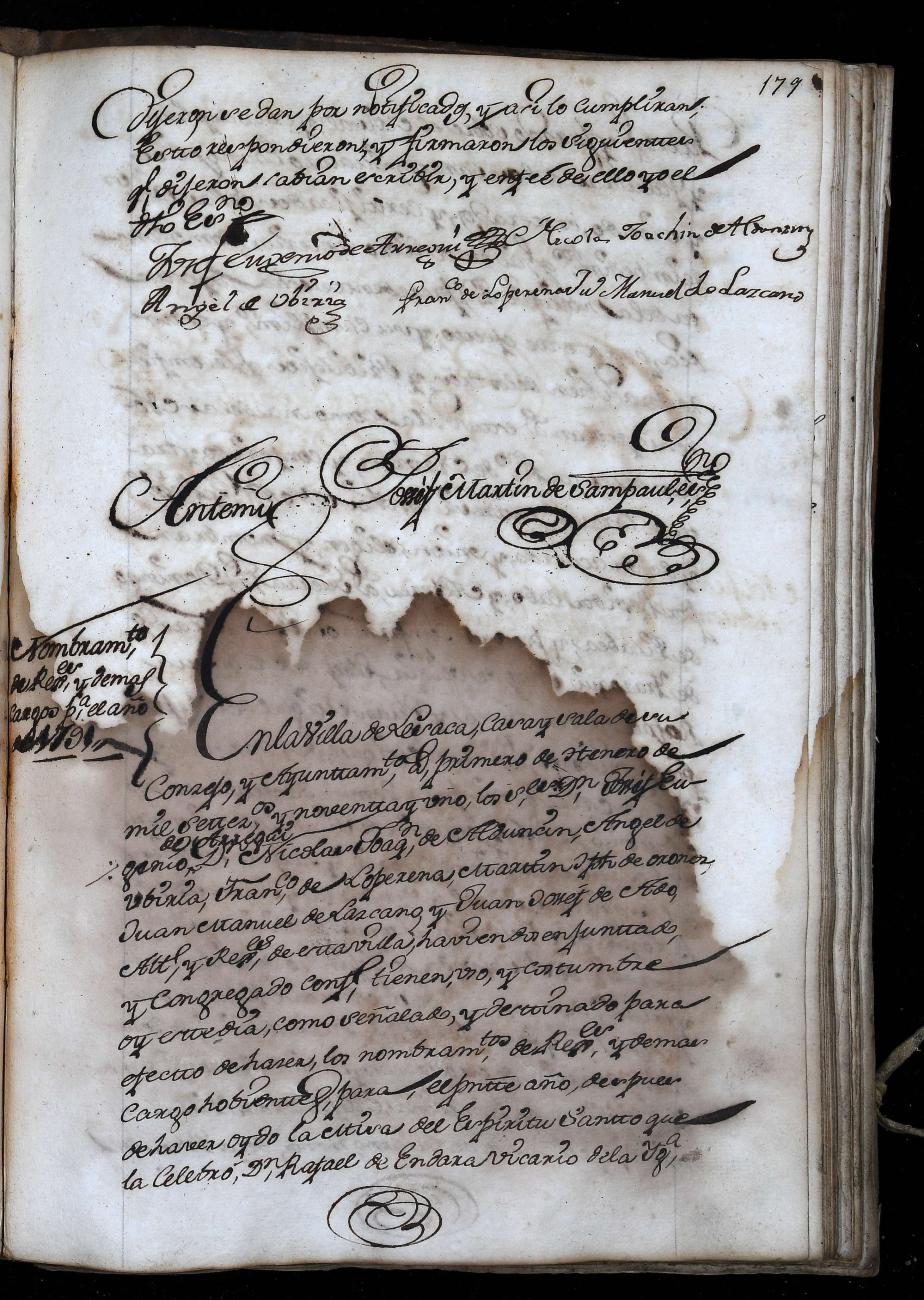 179
Dijeron se dan por notificados, y aci lo cumpliran,
Estto respondieron, y firmaron los siguienttes
q.e dijeron sabian escribir, y enfee de ello yo el
dho Es.no
Eugenio de Arregui Nicolas Joachin de Alduncin
Angel de Ubiria Fran.co de Loperena Juan Manuel de Lazcano
Antemi Josef Martin de Sampaul, es.no
Nombram.to
de Rex.es, y demas
Cargos p.a, el año
de 1791
En la Villa de Lesaca, Casa y sala de su
Consejo, y Ayunttam.to, A, primero de Henero de
mil Setter.os y noventta y uno, los S.res D.n Josef Eu-
genio, de Arregui D.n Nicolas Joaq.n, de Alduncin, Angel de
Ubiria, Fran.co de Loperena, Martin Jph de ororez,
Juan Manuel de Lazcano, y Juan Josef de Ado,
Alt.l, y Rex.es, de esta villa, haviendose junttado,
y Congregado conf.e, tienen, uso, y costumbre
oy este dia, como señalado, y desttinado para
efectto de haser, los nombram.tos de Rex.es, y demas
Cargohobienttes, para, el pntte año, despues
de haver oydo la Misa del Espiritu Santto que
la Celebró, D.n Rafael de Endara Vicario de la Yg.a,